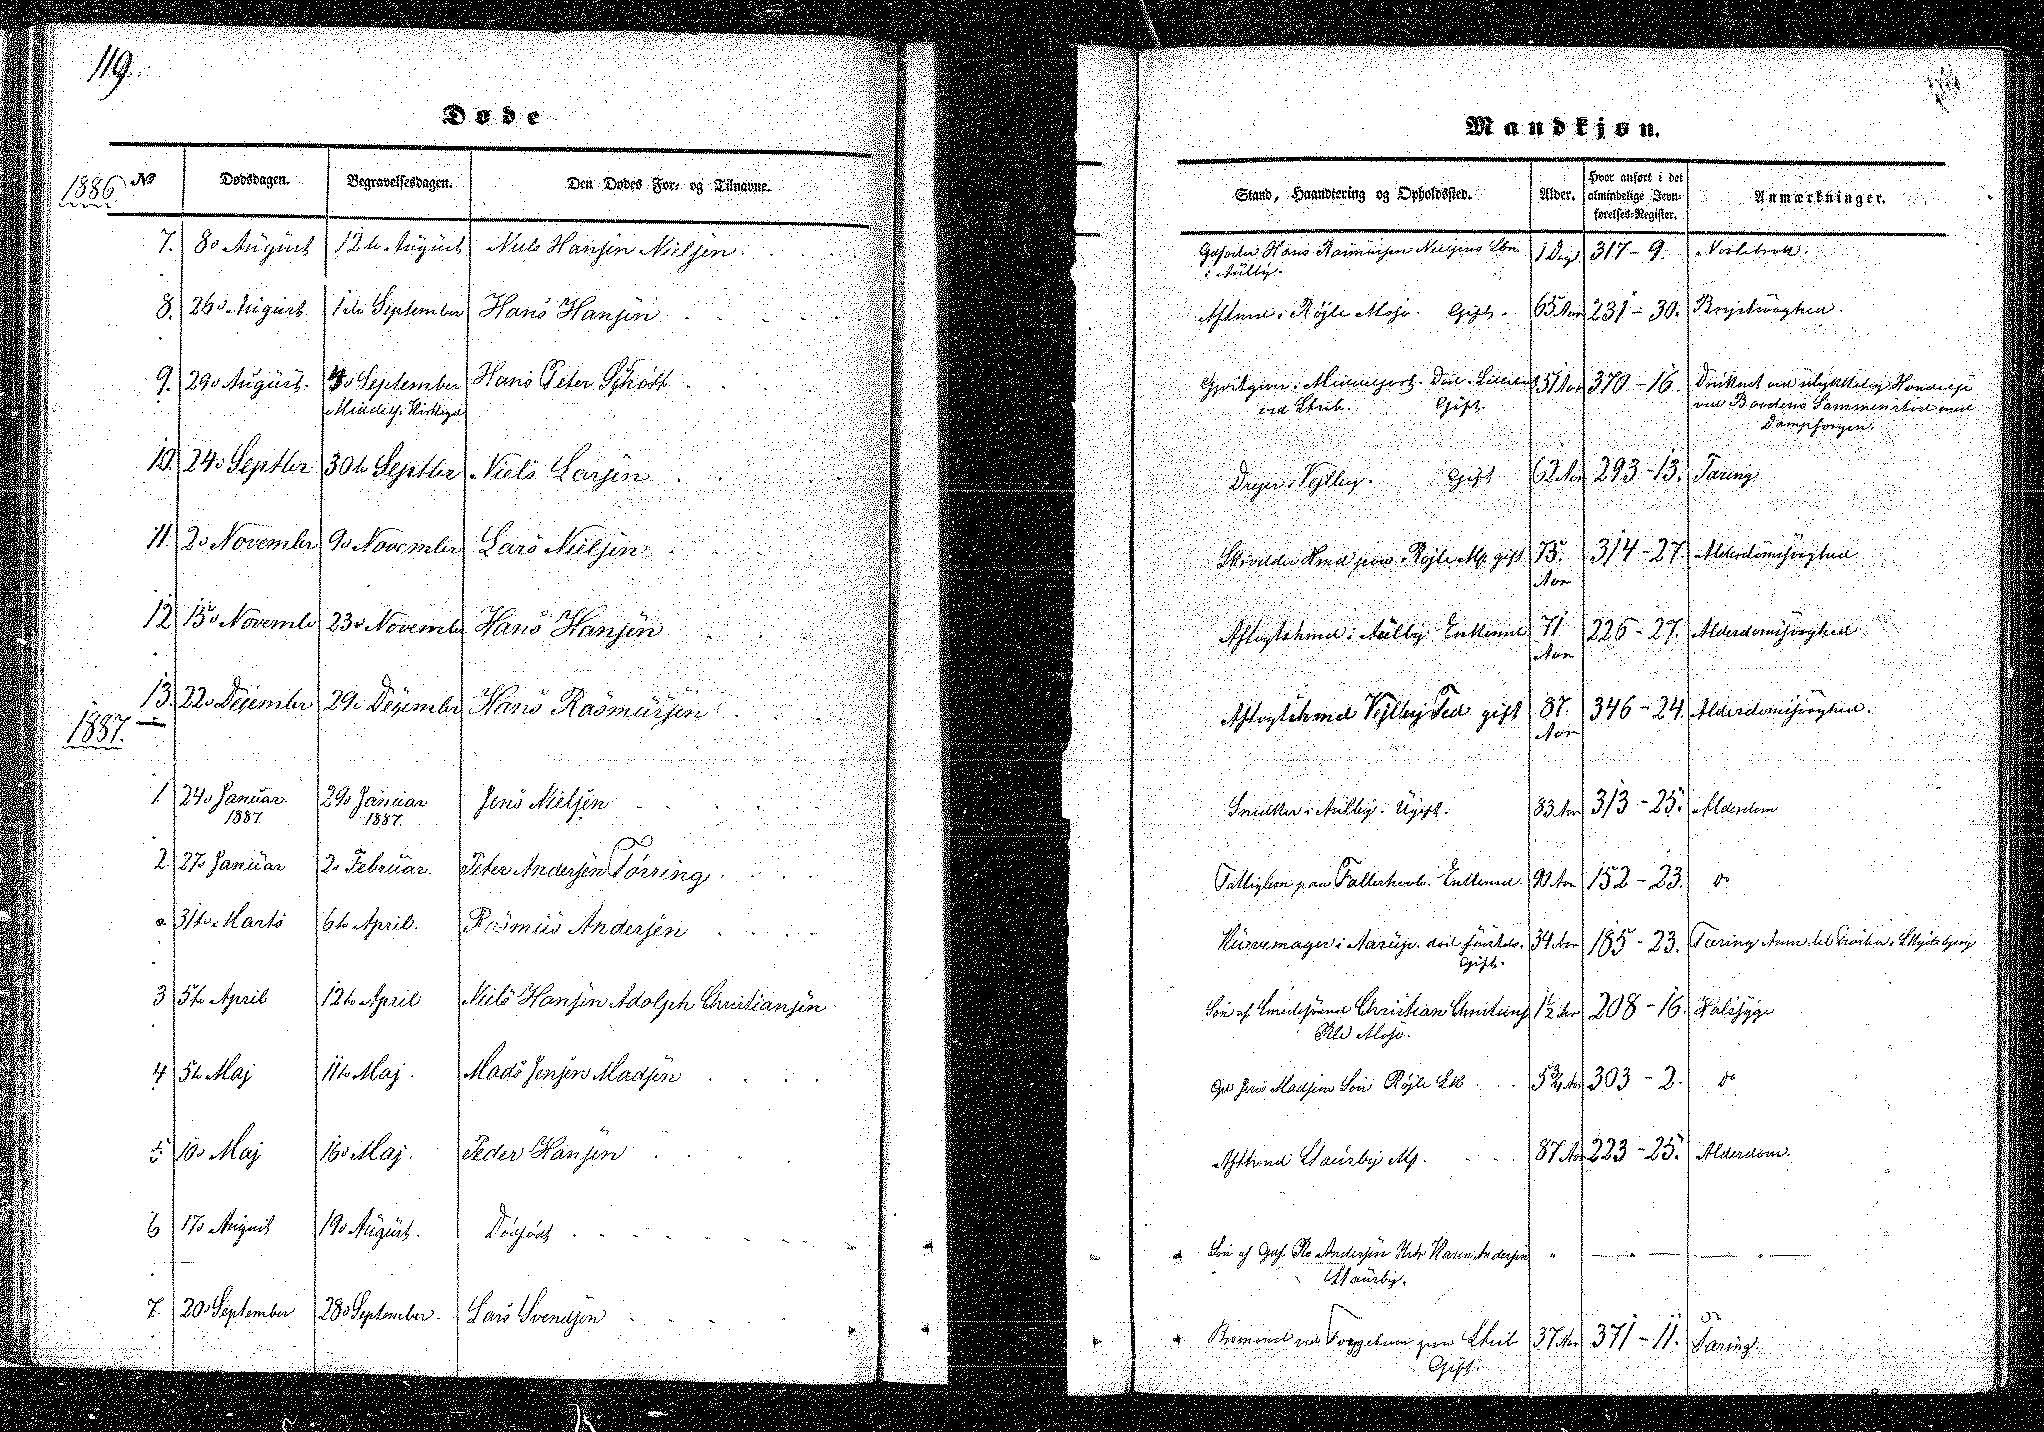 119.
Døde
Mandkjøn.
1886
No Dødsdagen. Begravelsesdagen. Den Dødes For- og Tilnavne. Stand, Haandtering og Opholdssted. Alder. Hvor anført i det almindelige Jevnførelses-Register. Anmærkninger.
7. 8de August 12te August Niels Hansen Nielsen. Gaardm Hans Rasmussen Nielsens Søn 1 Dag 317-9.
i Aulby.
8. 26de August 1ste September Hans Hansen i Røjle Mose. Gift. 65 Aar 231-30. Brystsyghed.
9. 29de August. 4de September Hans Peter Schøtt Gift. 51 Aar 370-16. Druknet ved ulykkelig Hændelse
ved Strib. ved Baadens Sammenstød med
Dampfærgen.
10. 24de Septbr 30te Septbr Niels Larsen Drejer i Vejlby. Gift 62 Aar 293-13. Tæring
11. 2de November 9de November Lars Nielsen Røjle gift 75. 314-27. Alderdomssvaghed
Aar
12 15de Novembr 23de Novembr Hans Hansen Aftægtsmd i Aulby Enkemd 71 226-27. Alderdomssvaghed
Aar
13. 22de Desember 29de Desembr Hans Rasmussen Aftægtsmd Vejlby Fed gift 87. 346-24. Alderdomssvaghed.
Aar
1887.
1. 24de Januar 29de Januar Jens Nielsen Snedker i Aulby. Ugift. 83 Aar 313-25. Alderdom
1887. 1887.
2 27de Januar 2de Februar. Peter Andersen Tørring Enkemd. 90 Aar 152-23. do
a 31te Marts 6te April. Rasmus Andersen Kurvemager i Aarup. 34 Aar 185-23. Tæring
Gift.
3 5te April 12te April Niels Hansen Adolph Christiansen Søn af Christian 1½ Aar 208-16. Halssyge
Mose.
4 5te Maj 11te Maj. Mads Jensen Madsen Jens Madsens Søn Røjle 5¾ Aar 303-2. do
5 10de Maj 16de Maj. Peder Hansen Aftmd Staurby 87 Aar 223-25. Alderdom.
6 17de August 19de August. Dødfødt Søn af Andersen Karen Andersen " " "
Staurby.
7. 20de September 28de September. Lars Svendsen paa Strib 37 Aar 371-11. Tæring.
Gift.